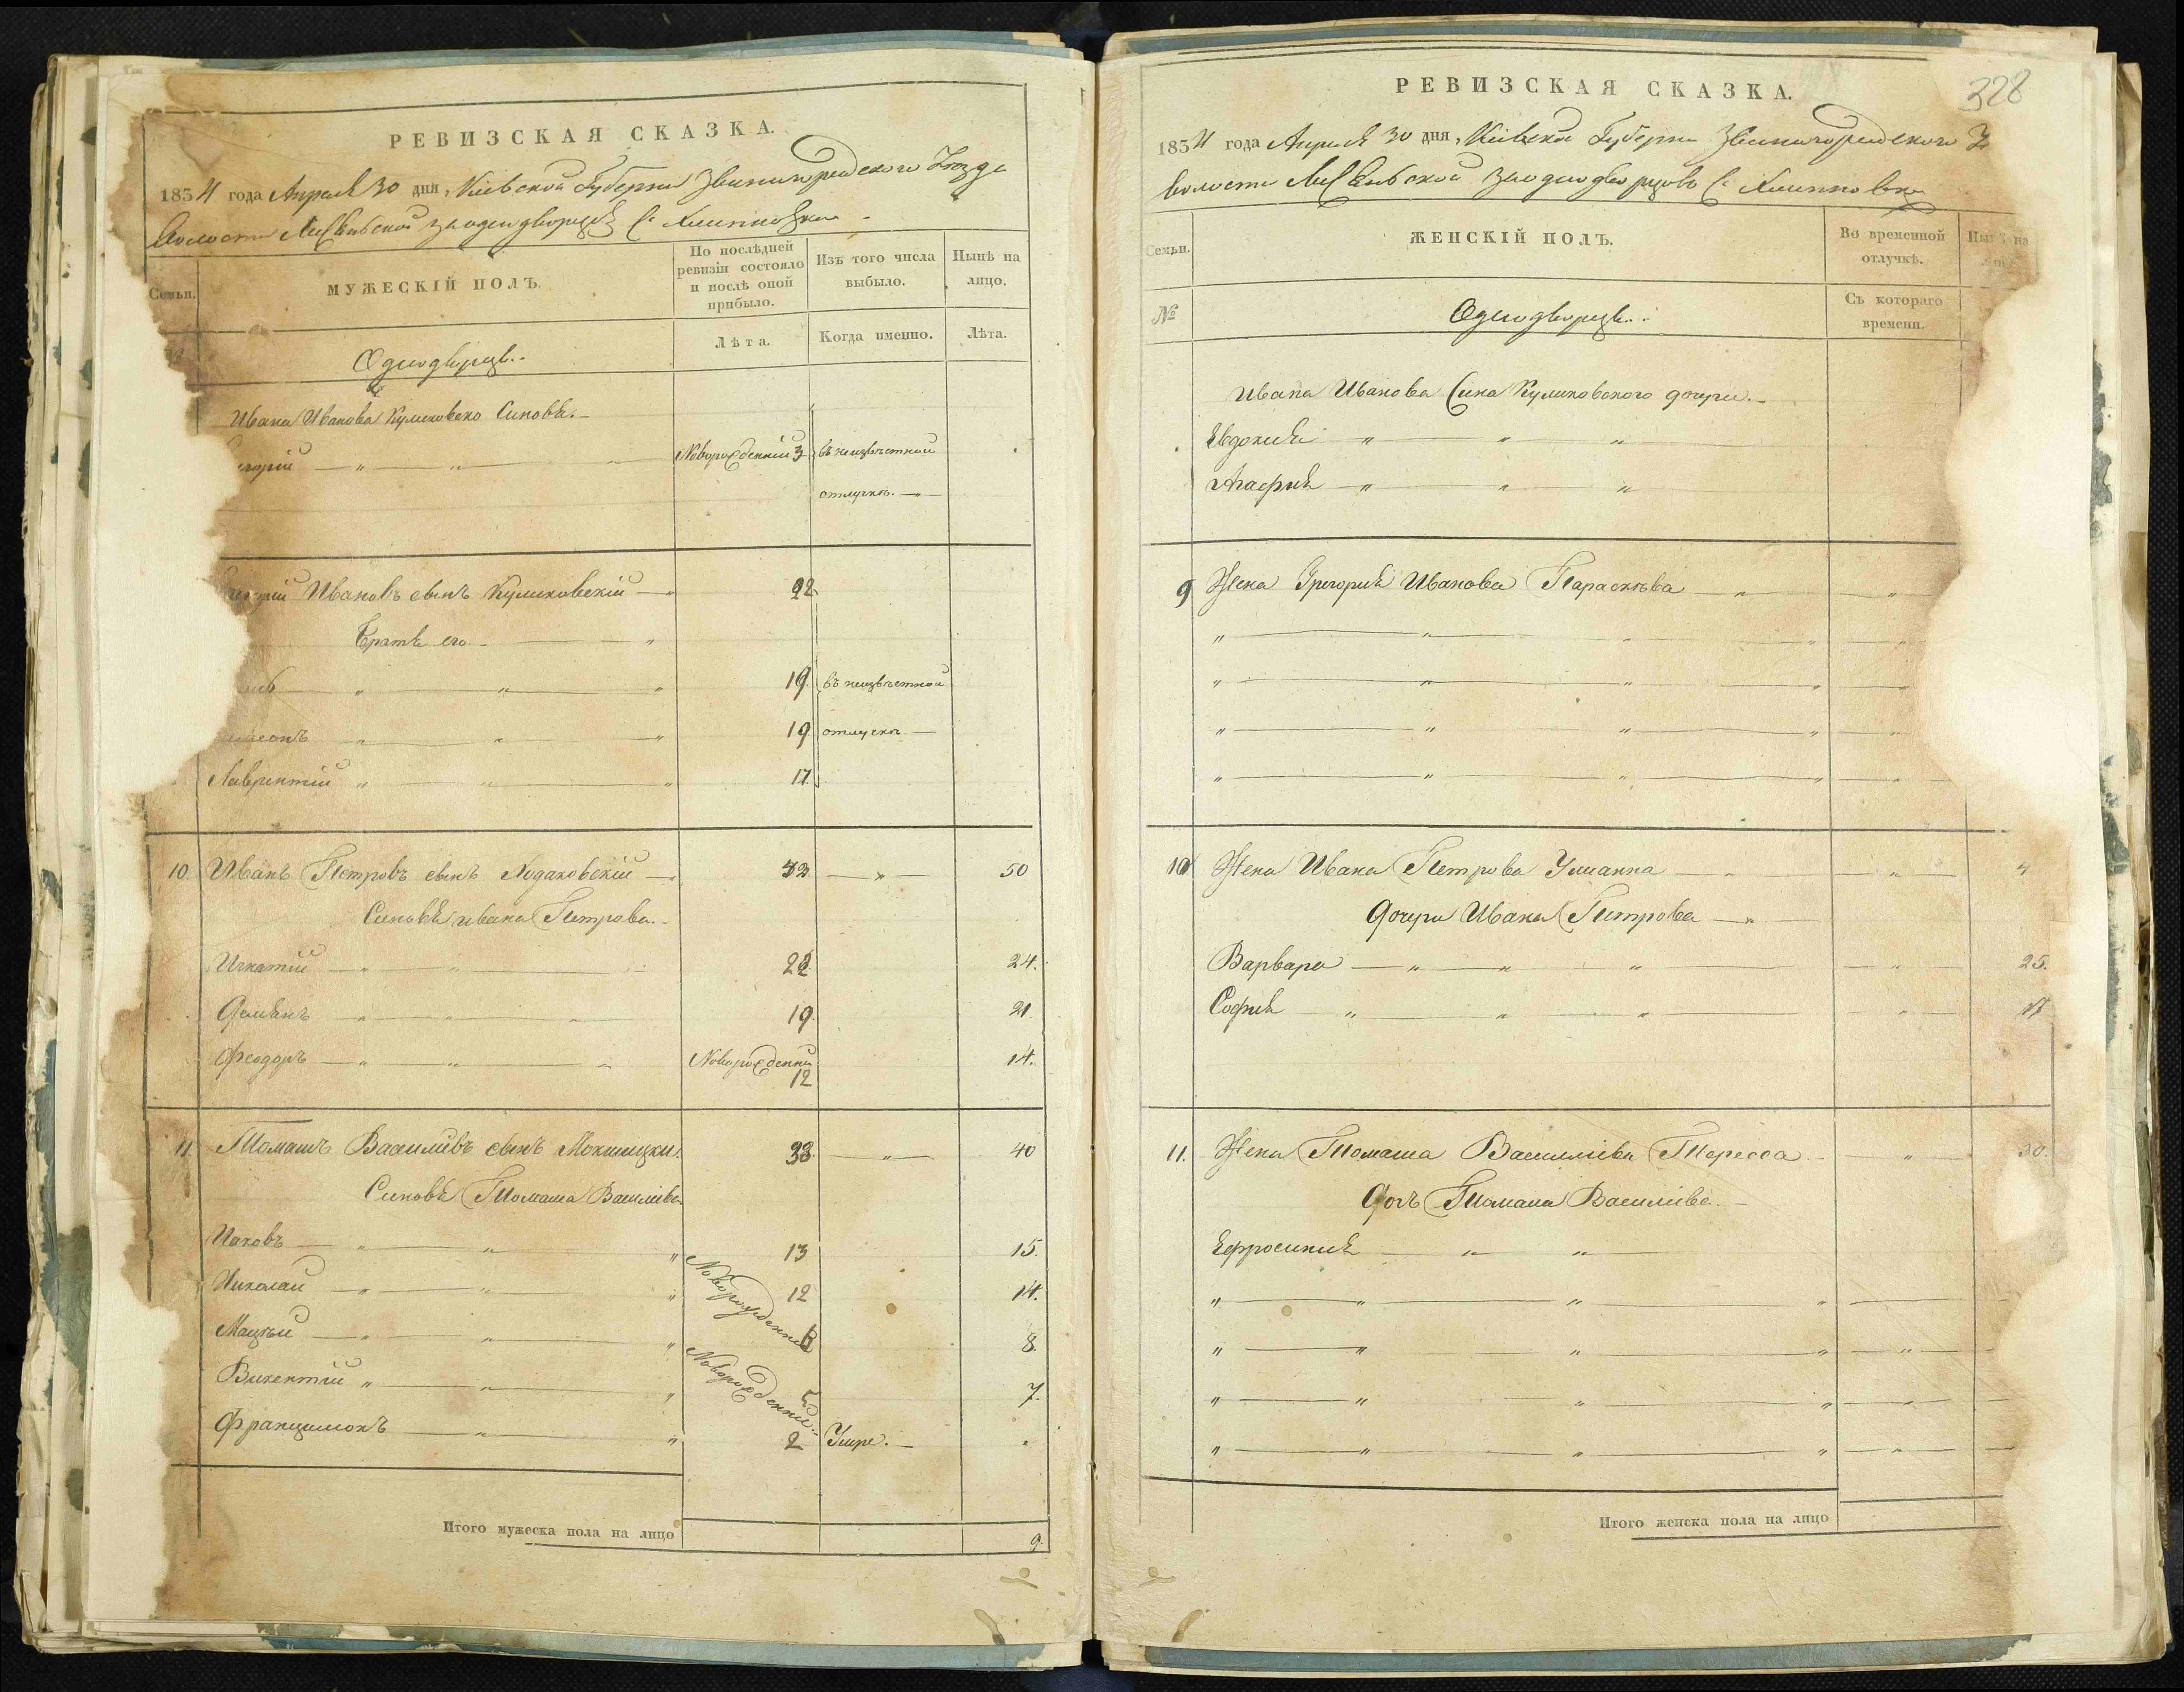 РЕВИЗСКАЯ СКАЗКА.
1834 года Апреля 30 дня, Кіевской Губерніи Звенигородского Уезда
Волости Лисянской
МУЖЕСКІЙ ПОЛЪ.
Семьи.
По послѣдней ревизіи состояло и послѣ оной прибыло.
Изъ того числа выбыло.
Нынѣ на лицо.
Лѣта.
Когда именно.
Лѣта.
Однодворцы.
Ивана Иванова Куликовско Синовья.
Новорожденній 3 въ неизвѣстной
отлучкѣ.
Ивановъ сынъ Куликовскій 22
Братья его
19 въ неизвѣстной
19 отлучкѣ
Лаврентій 17
10. Иванъ Петровъ сынъ Ходаковскій 50
Синовья Ивана Петрова.
Игнатій 22 24.
Демянъ 19. 21
Феодоръ Новорожденни 12 14.
11 Томашъ Василивъ сынъ 38 40
Синовья Томаша Василива
Иаковъ 13 15.
Николай Новорожденній 12 14.
Мацѣй 6 8.
Викентій Новорожденній 5 7.
Францишокъ 2 Умре.
Итого мужеска пола на лицо 9.
РЕВИЗСКАЯ СКАЗКА.
328
1834 года Апреля 30 дня, Кіевской Губерніи Звенигородского У
волости Лисянской
Семьи.
ЖЕНСКІЙ ПОЛЪ.
Во временной отлучкѣ.
Нынѣ на
№
Съ котораго времени.
Однодворцы.
Ивана Иванова Сина Куликовского дочери.
Евдокия
Агафия
9 Жена Григория Иванова Параскѣва
10 Жена Ивана Петрова Улианна 4
Дочери Ивана Петрова
Варвара 25.
София
11. Жена Томаша Василиива Тересса 30.
Дочь Томаша Василива.
Ефросиния
Итого женска пола на лицо